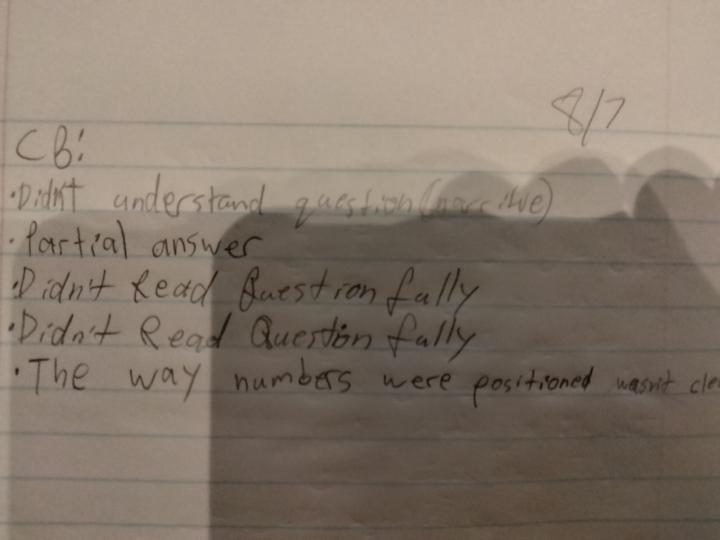 8/7
CB:
•Didn't understand question
•Partial answer
•Didn't Read Question fully
•Didn't Read Question fully
•The way numbers were positioned wasn't